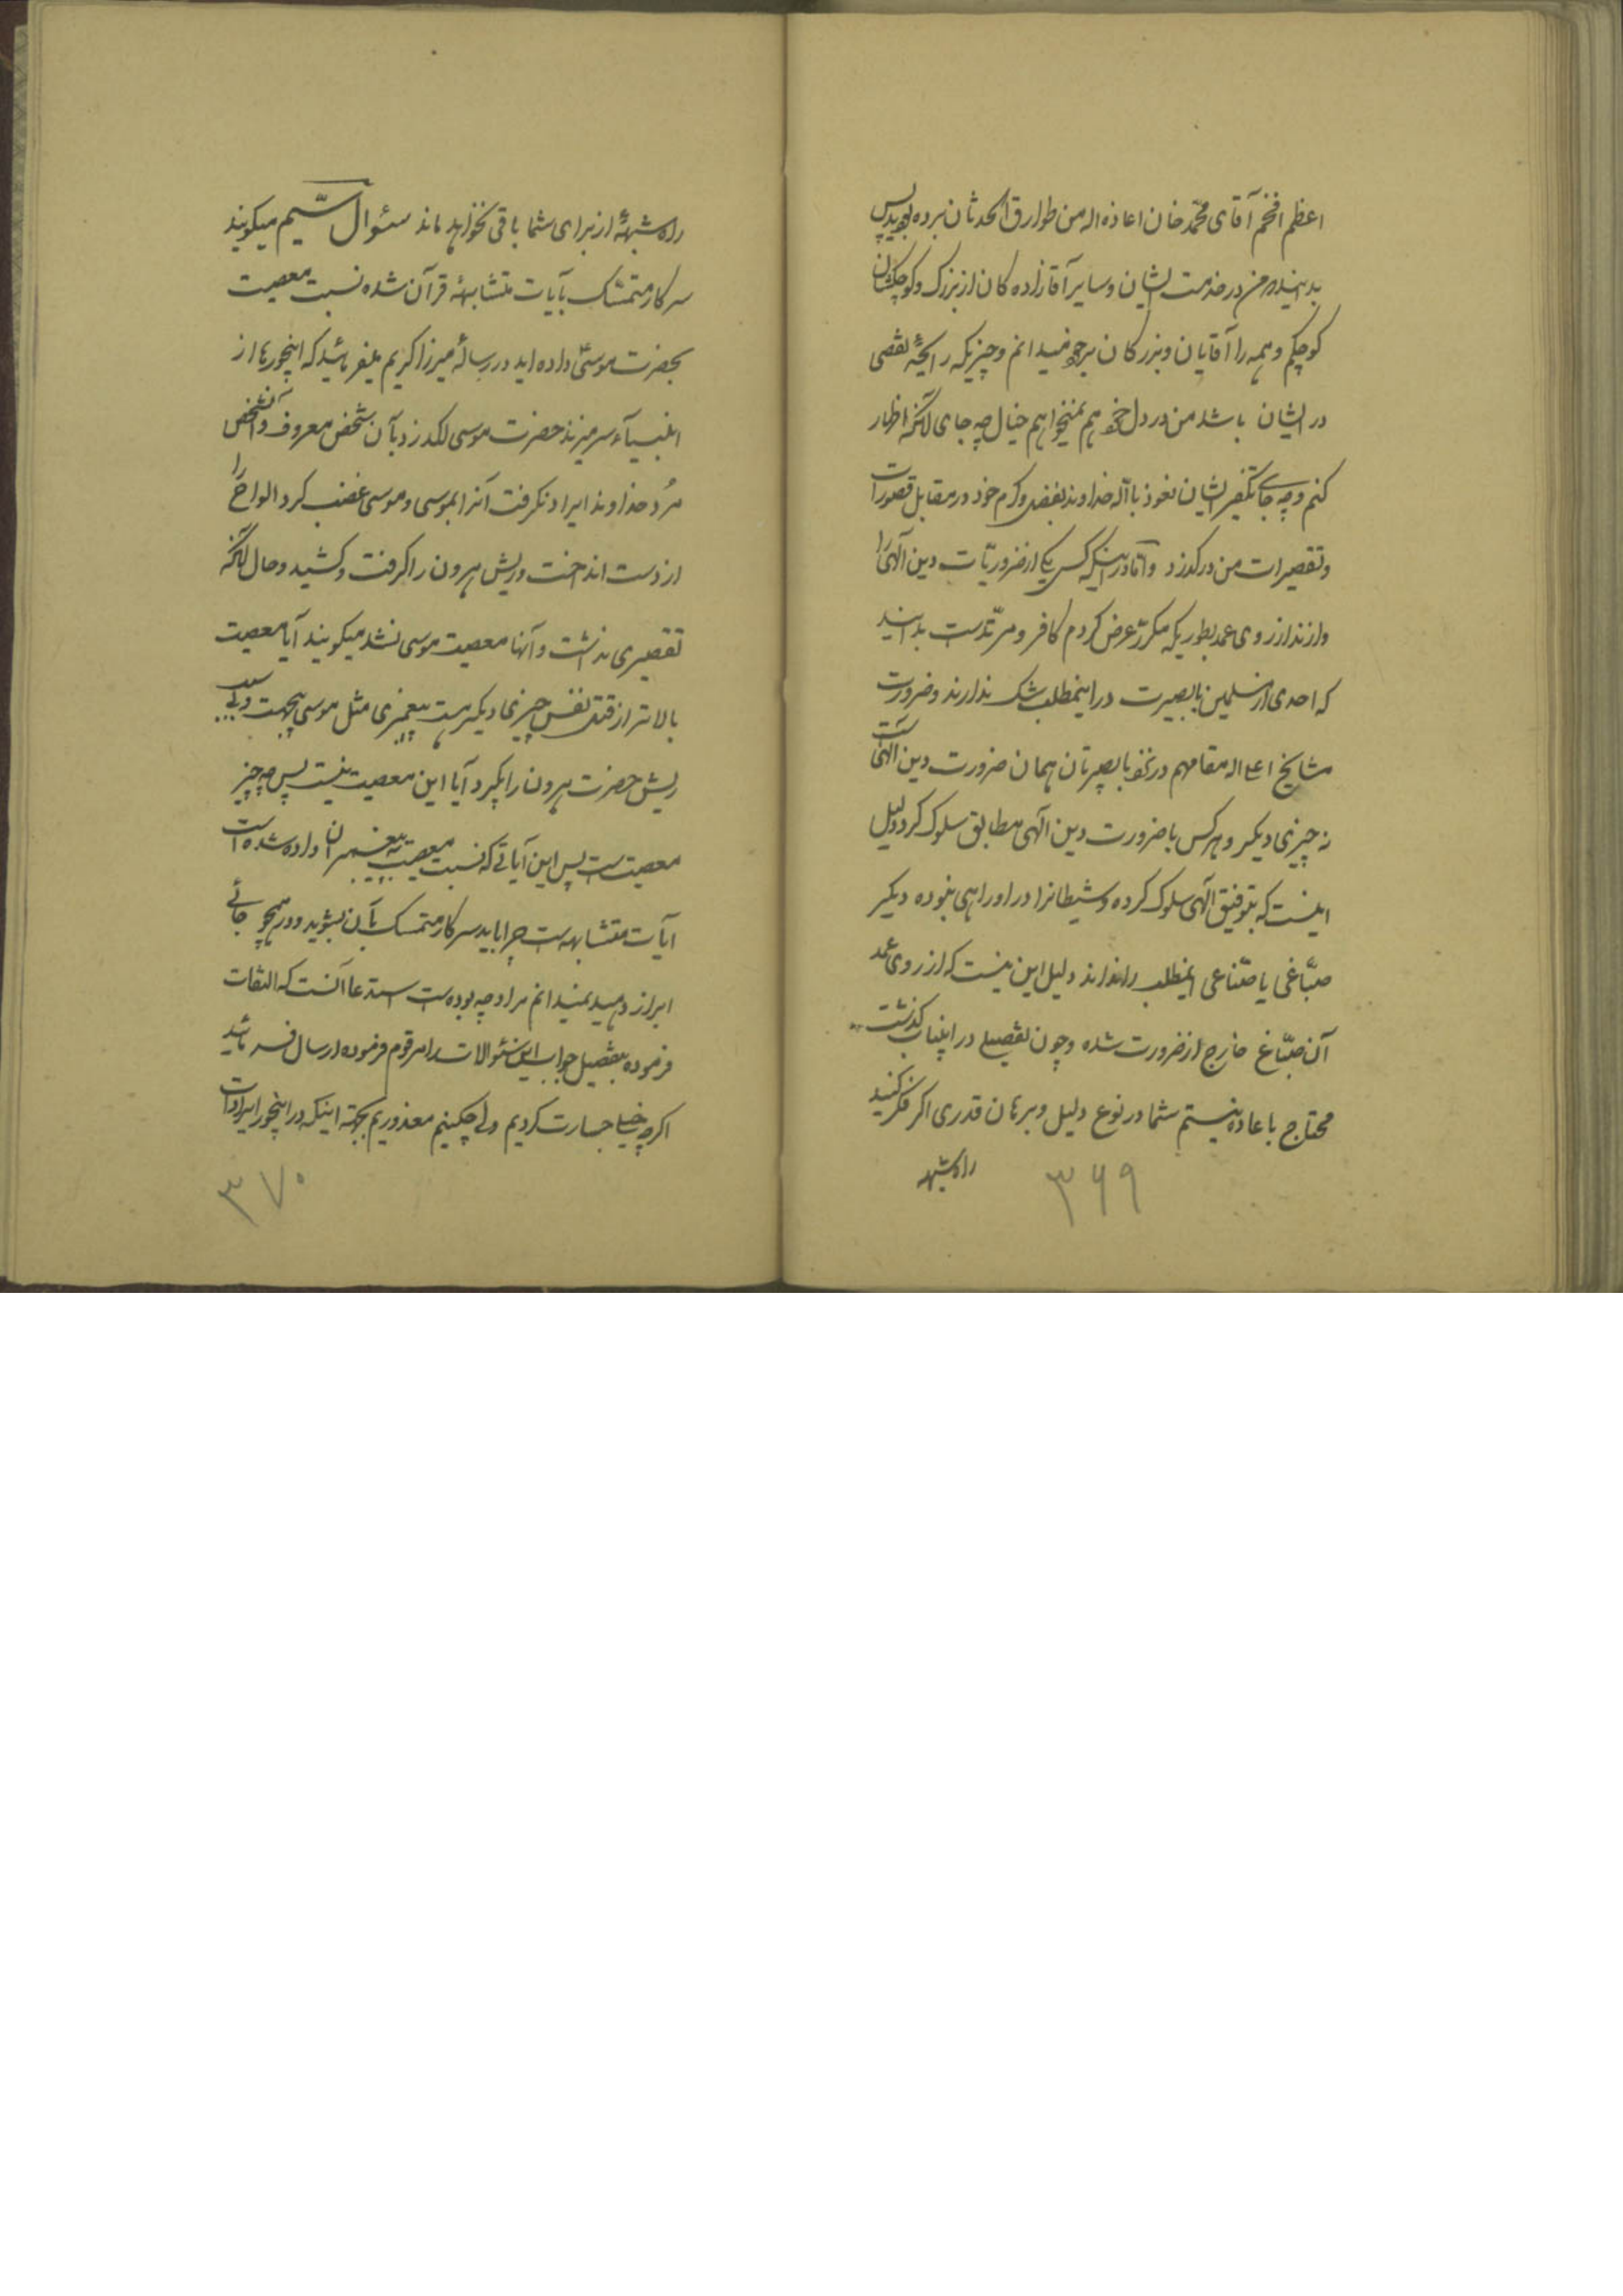 اعظم افخم آقای محمد خان اعاذه اله من طوارق الحدثان برده بودید پس
بدانید من در خدمت ایشان و سایر آقازاده کان از بزرگ و کوچکشان
کوچکم و همه را آقایان و بزرکان برخود میدانم و چیزیکه رایحهٔ نقصی
در ایشان باشد من در دل خود هم نمیخواهم خیال چه جای آنکه اظهار
کنم و چه جای تکفیر ایشان نعوذ باله خداوند بفضل و کرم خود در مقابل قصورات
و تقصیرات من درکذرد و اما در اینکه کسی یکی از ضروریّات دین آلهی را
وازند از روی عمد بطوریکه مکرّر عرض کردم کافر و مرتّد است بدانید
که احدی از مسلمین با بصیرت در اینمطلب شک ندارند و ضرورت
مشایخ اعلی اله مقامهم در نزد با بصیرتان همان ضرورت دین الهی است
نه چیزی دیکر و هرکس با ضرورت دین الهی مطابق سلوک کرد دلیل
اینست که بتوفیق الهی سلوک کرده و شیطانرا در او راهی نبوده دیکر
صبّاغی یا صنّاعی اینمطلب را نداند دلیل این نیست که از روی عمد
آن صبّاغ خارج از ضرورت شده و چون تفصیلی در اینباب کذشت
محتاج باعاده نیستم شما در نوع دلیل و برهان قدری اکر فکر کنید
راه شبهه
۳۶۹
راه شبههٔ از برای شما باقی نخواهد ماند سئوال سیّم میکویند
سرکار متمسّک بآیات متشابههٔ قرآن شده نسبت معصیت
بحضرت موسی داده اید در رسالهٔ میرزا کریم میفرمائید که اینجورها از
انبیآء سر میزند حضرت موسی لکد زد بآن شخص معروف و آنشخص
مُرد خداوند ایراد نکرفت آنرا بموسی و موسی غضب کرد الواح را
از دست انداخت و ریش هرون را کرفت و کشید و حال آنکه
تقصیری نداشت و آنها معصیت موسی نشد میکویند آیا معصیت
بالاتر از قتل نفس چیزی دیکر هست پیغمبری مثل موسی بیجهت
ریش حضرت هرون را بکیرد آیا این معصیت نیست پس چه چیز
معصیت است پس این آیاتی که نسبت معصیت به پیغمبران داده شده است
آیات متشابهه است چرا باید سرکار متمسک بآن بشوید و در همچو جائی
ابراز دهید نمیدانم مراد چه بوده است استدعا آنست که التفات
فرموده بتفصیل جواب این سئوالات را مرقوم فرموده ارسال فرمائید
اکرچه خیلی جسارت کردیم ولی چکنیم معذوریم بجهة اینکه در اینجور ایرادات
۳۷۰